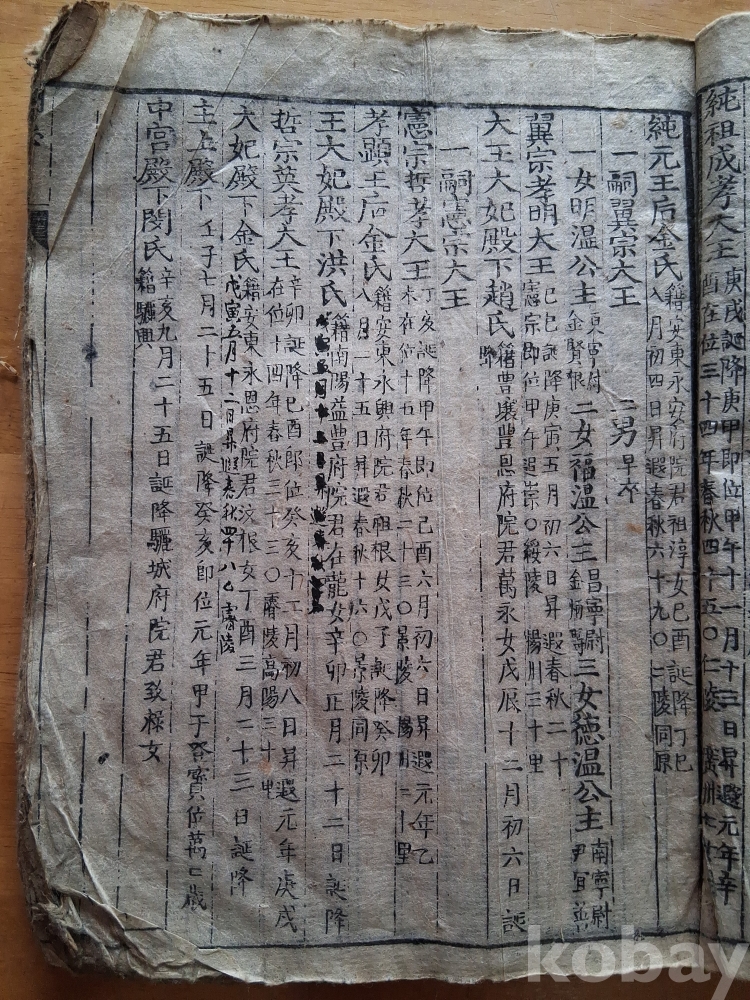 純祖成孝大王 庚戌誕降庚申即位甲午十一月十三日昇遐元年辛
酉在位三十四年春秋四十五〇仁陵
純元王后金氏 籍安東永安府院君祖淳女己酉誕降丁巳
八月初四日昇遐春秋六十九〇仁陵同原
一嗣翼宗大王 二男早卒
一女明溫公主 東寧尉金賢根 二女福溫公主 昌寧尉金 三女德溫公主 南寧尉尹宜善
翼宗孝明大王 己巳誕降庚寅五月初六日昇遐春秋二十
憲宗即位甲午追崇〇綏陵 楊州三十里
大王大妃殿下趙氏 籍豊壤豊恩府院君萬永女戊辰十二月初六日誕
降
一嗣憲宗大王
憲宗哲孝大王 丁亥誕降甲午即位己酉六月初六日昇遐元年乙
未在位十五年春秋二十三〇景陵 楊州三十里
孝顯王后金氏 籍安東永興府院君祖根女戊子誕降癸卯
八月二十五日昇遐春秋十六〇景陵同原
王大妃殿下洪氏 籍南陽益豊府院君在龍女辛卯正月二十二日誕降
哲宗英孝大王 辛卯誕降己酉即位癸亥十二月初八日昇遐元年庚戌
在位十四年春秋三十三〇睿陵高陽三十里
大妃殿下金氏 籍安東永恩府院君汶根女丁酉三月二十三日誕降
戊寅五月十二日昇遐春秋四十八〇睿陵
主上殿下 壬子七月二十五日誕降癸亥即位元年甲子登寶位萬〻歲
中宮殿下閔氏 辛亥九月二十五日誕降驪城府院君致祿女
籍驪興
kobay